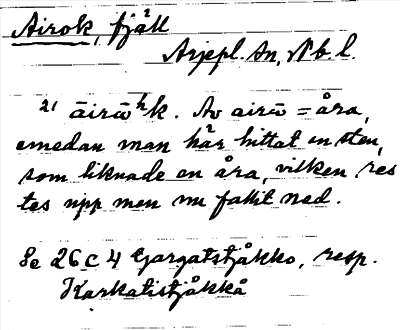 Airok, fjäll
Arjepl. sn, Nb. l.
21 āirāʰk. Av airā = åra,
emedan man här hittat en sten,
som liknade en åra, vilken res
tes upp men nu fallit ned.
Se 26 C 4 Gargatstjåkko, resp.
Karkatistjåkkå